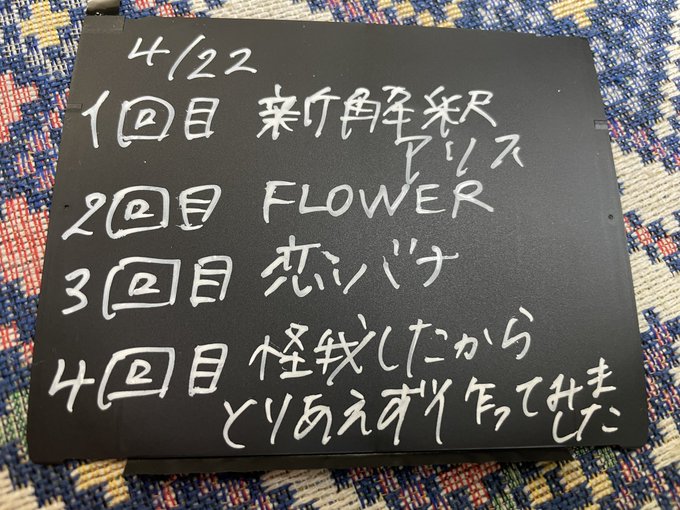 4/22
1回目 新解釈
アリス
2回目 FLOWER
3回目 恋バナ
4回目 怪我したから
とりあえず作ってみま
した